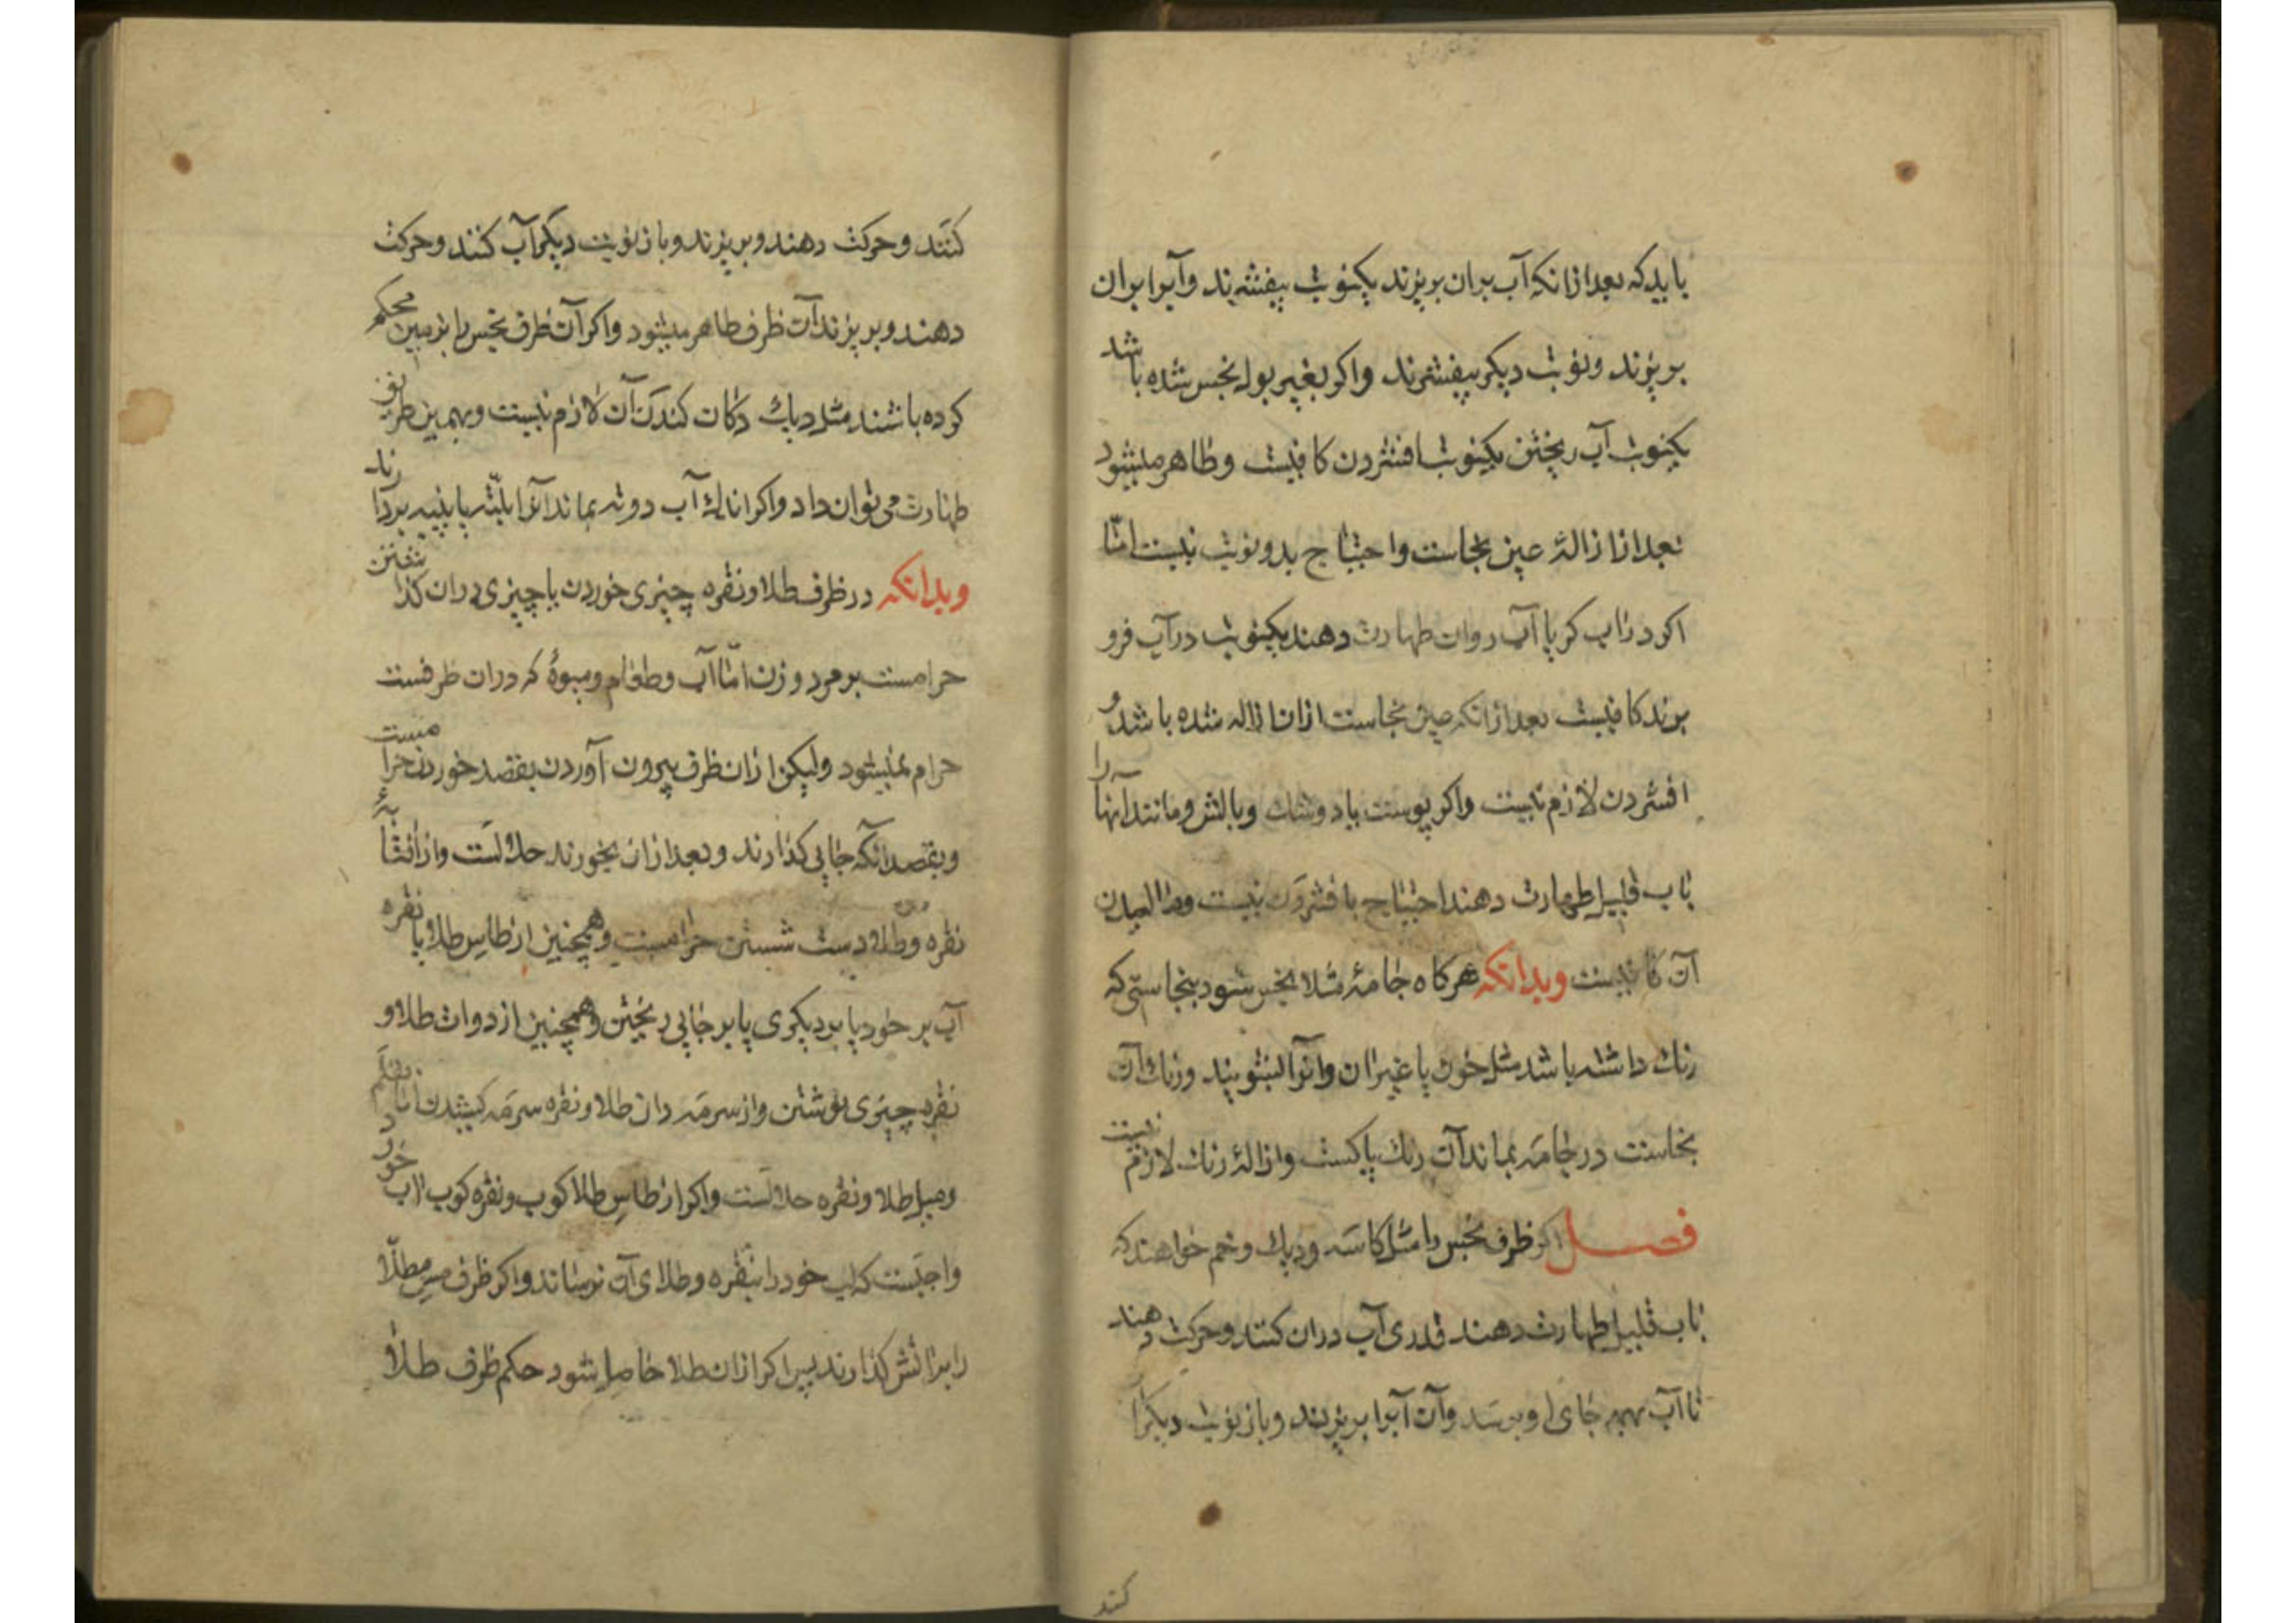 باید که بعد ازانکه آب بران بریزند یکنوبت بیفشرند وآبرا بران
بریزند ونوبت دیگر بیفشرند واکر بغیر بول نجس شده باشد
یکنوبت آب ریختن یکنوبت افشردن کافیست وطاهر میشود
بعد از ازالۀ عین نجاست واحتیاج بدونوبت نیست امّا
اکر دراب کر یا آب روان طهارت دهند یکنوبت درآب فرو
برند کافیست بعد ازانکه عین نجاست ازان ازاله شده باشد و
افشردن لازم نیست واکر پوست یا دوشك وبالش ومانند آنها را
باب قلیل طهارت دهند احتیاج بافشردن نیست ومالیدن
آن کافیست وبدانکه هرکاه جامۀ مثلا نجس شود بنجاستی که
رنك داشته باشد مثل خون یا غیران وانرا بشویند ورنك آن
نجاست در جامه بماند آن رنك پاکست وازالۀ رنك لازم نیست
فصل اکر ظرف نجس را مثل کاسه ودیك وخم خواهند که
باب قلیل طهارت دهند قدری آب دران کنند وحرکت دهند
تا آب بهمه جای او برسد وآن آبرا بریزند وباز نوبت دیکر آ
کنند
کنند وحرکت دهند وبریزند وباز نوبت دیکر آب کنند وحرکت
دهند وبریزند آن ظرف طاهر میشود واکر آن ظرف نجس را بزمین محکم
کرده باشند مثل دیك دکان کندن آن لازم نیست وبهمین طریق
طهارت می توان داد واکر اندك آب دوته بماند آنرا بلتّه یا پنبه بردارند
وبدانکه در ظرف طلا ونقره چیزی خوردن یا چیزی دران کذاشتن
حرامست بر مرد وزن امّا آب وطعام ومیوۀ که دران ظرفست
حرام نمیشود ولیکن ازان ظرف بیرون آوردن بقصد خوردن حرامست
وبقصد آنکه جایی کذارند وبعد ازان بخورند حلالست واز افتابۀ
نقره وطلا دست شستن حرامست وهمچنین از طاس طلا یا نقره
آب بر خود یا بر دیکری یا بر جایی ریختن وهمچنین از دوات طلا و
نقره چیزی نوشتن واز سرمه دان طلا ونقره سرمه کشیدن امّا قلم
ومیل طلا ونقره حلالست واکر از طاس طلا کوب ونقره کوب اب خورد
واجبست که لب خود را بنقره وطلای آن نرساند واکر ظرف مس مطلّا
را براتش کذارند پس اکر ازان طلا حاصل شود حکم ظرف طلا